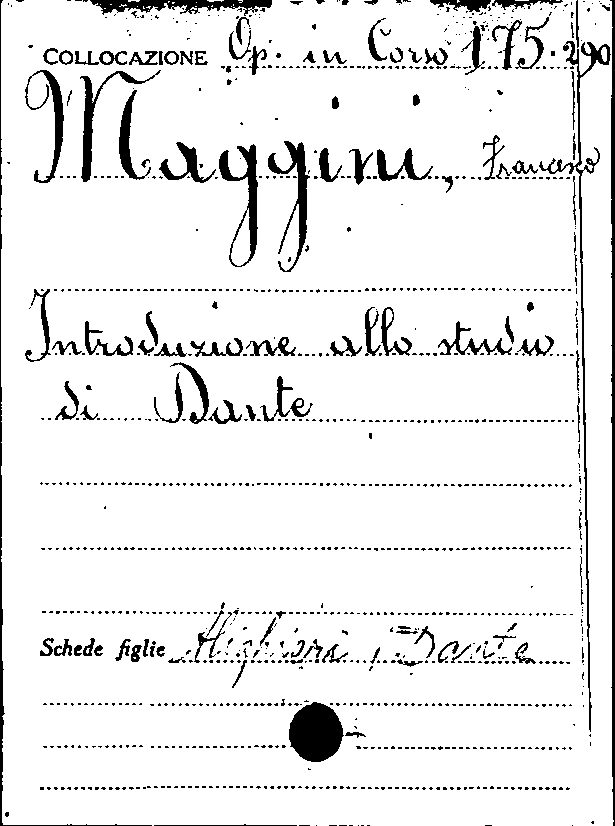 COLLOCAZIONE Op. in Corso 175.290
Maggini, Francesco
Introduzione allo studio
di Dante
Schede figlie Alighieri, Dante